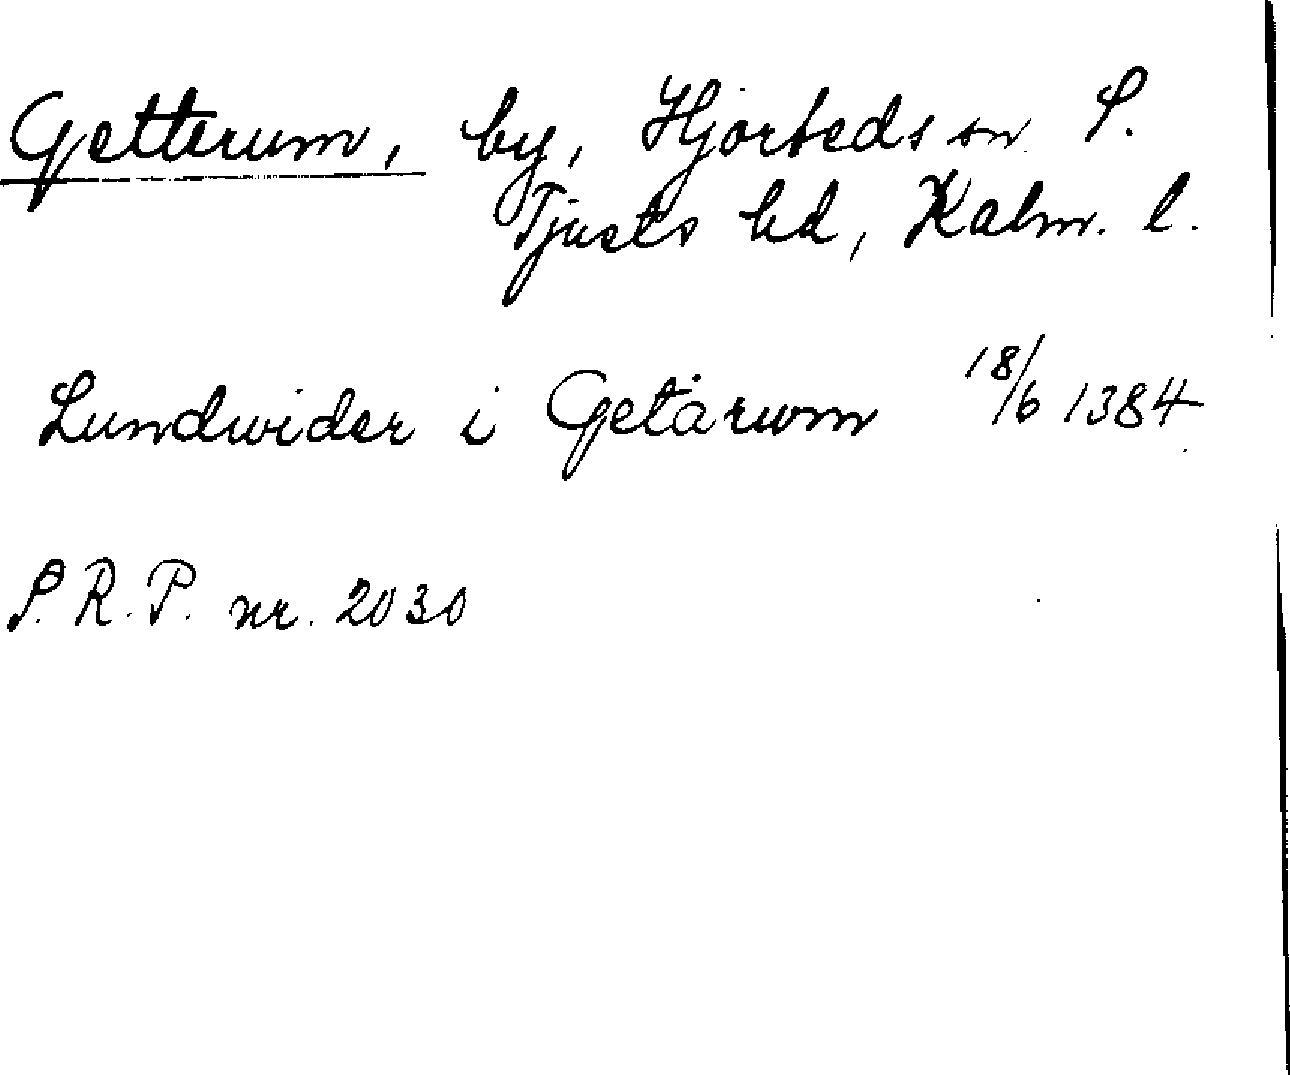 Getterum, by, Hjorteds sn S.
Tjusts hd, Kalm. l.
Lundwider i Getarwm 18/6 1384
S. R. P. nr. 2030